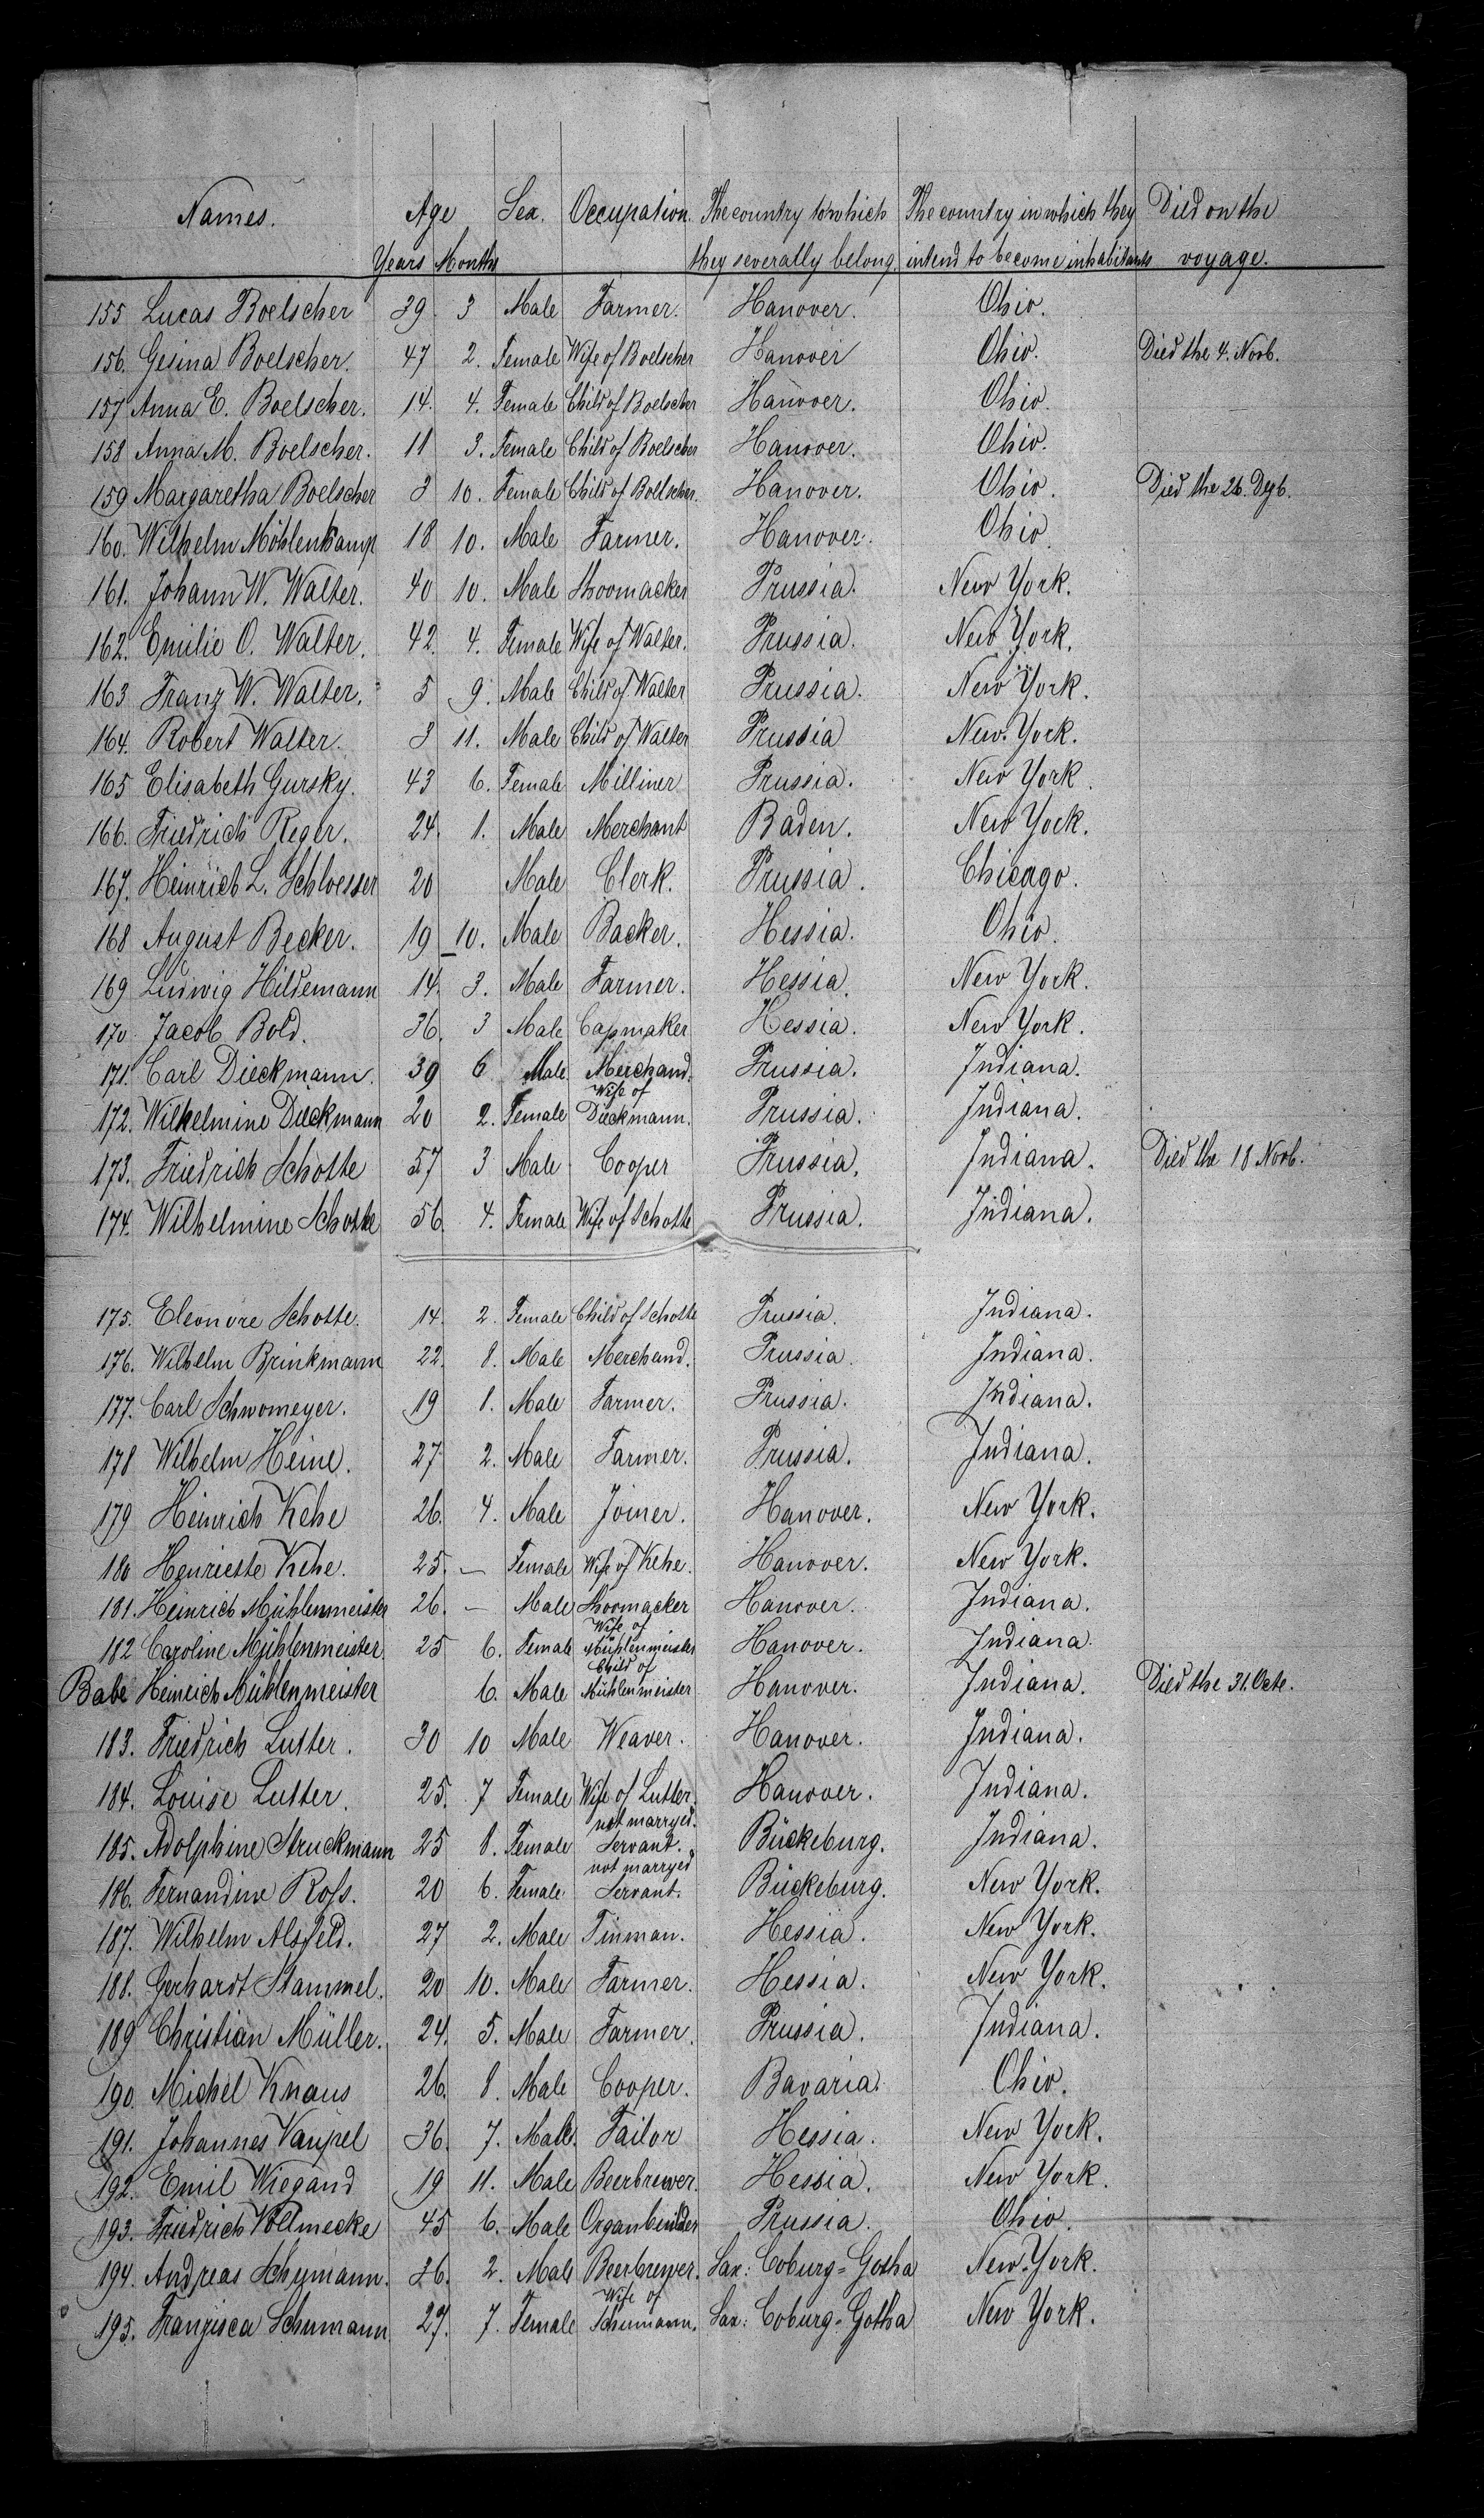 Names. Age Sex. Occupation. The country to which The country in which they Died on the
Years Months they severally belong. intend to become inhabitants voyage.
155 Lucas Boelscher 39. 3 Male Farmer. Hanover. Ohio.
156. Gesina Boelscher. 47 2. Female Wife of Boelscher Hanover Ohio. Died the 4. Novb.
157 Anna E. Boelscher. 14. 4. Female Child of Boelscher Hanover. Ohio.
158 Anna M. Boelscher. 11 3. Female Child of Boelscher Hanover. Ohio.
159 Margaretha Boelscher 3 10. Female Child of Boelscher. Hanover. Ohio. Died the 26.
160. Wilhelm Möhlenkamp 18 10. Male Farmer. Hanover. Ohio
161. Johann W. Walter. 40 10. Male Shoomacker Prussia. New York.
162. Emilie O. Walter. 42. 4. Female Wife of Walter. Prussia. New York.
163 Franz W. Walter. 5 9. Male Child of Walter Prussia. New York.
164. Robert Walter. 3 11. Male Child of Walter Prussia New York.
165 Elisabeth Gursky. 43 6. Female Milliner Prussia. New York.
166. Friedrich Reger. 24. 1. Male Merchant Baden. New York.
167. Heinrich L. Schloesser 20 Male Clerk. Prussia. Chicago.
168 August Becker. 19 10. Male Backer. Hessia. Ohio.
169 Ludwig Hildemann 14. 3. Male Farmer. Hessia. New York.
170 Jacob Bold. 36. 3 Male Capmaker Hessia. New York.
171. Carl Dieckmann. 39 6 Male Merchand. Prussia. Indiana.
Wife of
172. Wilhelmine Dieckmann 20 2. Female Dieckmann. Prussia. Indiana.
173. Friedrich Schotte 57 3 Male Cooper Prussia. Indiana. Died the 18 Novb.
174. Wilhelmine Schotte 56 4. Female Wife of Schotte Prussia. Indiana.
175. Eleonore Schotte. 14. 2. Female Child of Schotte Prussia. Indiana.
176. Wilhelm Brinkmann 22. 8. Male Merchand. Prussia. Indiana.
177. Carl Schwomeyer. 19 1. Male Farmer. Prussia. Indiana.
178 Wilhelm Heine. 27 2. Male Farmer. Prussia. Indiana.
179 Heinrich Kehe 26. 4. Male Joiner. Hanover. New York.
180 Henriette Kehe. 25. — Female Wife of Kehe. Hanover. New York.
181. Heinrich Mühlenmeister 26. — Male Shoomacker Hanover. Indiana.
Wife of
182 Caroline Mühlenmeister 25 6. Female Mühlenmeister Hanover. Indiana.
Child of
Babe Heinrich Mühlenmeister 6. Male Mühlenmeister Hanover. Indiana. Died the 31. Octe.
183. Friedrich Lutter. 30 10 Male Weaver. Hanover. Indiana.
184. Louise Lutter. 25. 7 Female Wife of Lutter. Hanover. Indiana.
not marryed.
185. Adolphine Struckmann 25 8. Female Servant. Bückeburg. Indiana.
not marryed
186. Fernandine Rofs. 20 6. Female Servant. Bückeburg. New York.
187. Wilhelm Alsfeld. 27 2. Male Tinman. Hessia. New York.
188. Gerhardt Stammel. 20 10. Male Farmer. Hessia. New York.
189 Christian Müller. 24. 5. Male Farmer. Prussia. Indiana.
190. Michel Knaus 26. 8. Male Cooper. Bavaria. Ohio.
191. Johannes Vaupel 36. 7. Male. Tailor Hessia. New York.
192. Emil Wiegand 19 11. Male Beerbrewer. Hessia. New York.
193. Friedrich Vollmecke 45 6. Male Organbuilder Prussia. Ohio.
194. Andreas Schumann. 36. 2. Male Beerbrewer. Sax: Coburg=Gotha New York.
Wife of
195. Franzisca Schumann 27. 7. Female Schumann. Sax: Coburg=Gotha New York.